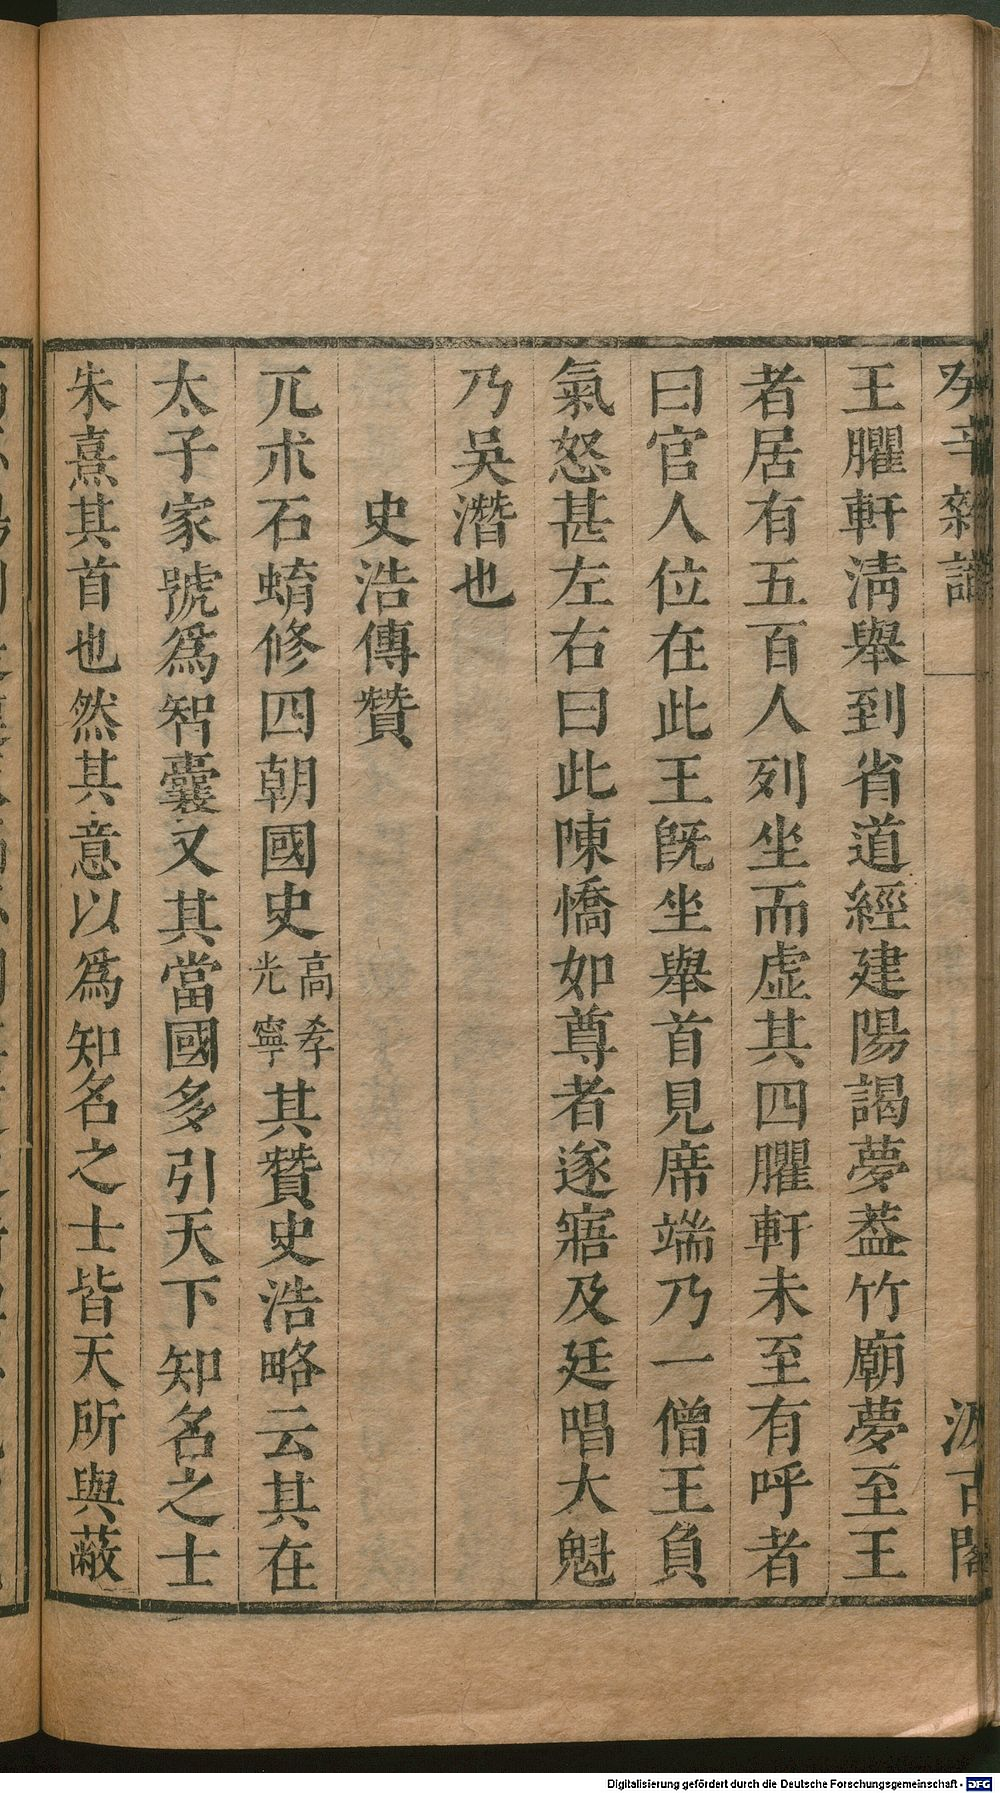 癸辛雜識
汲古閣
王臞軒淸舉到省道經建陽謁夢葢竹廟夢至王
者居有五百人列坐而虛其四臞軒未至有呼者
曰官人位在此王旣坐舉首見席端乃一僧王負
氣怒甚左右曰此陳憍如尊者遂寤及廷唱大魁
乃吳潛也
史浩傳贊
兀朮石蜟修四朝國史高孝光寧其贊史浩略云其在
太子家號爲智囊又其當國多引天下知名之士
朱熹其首也然其意以爲知名之士皆天所與蔽
Digitalisierung gefördert durch die Deutsche Forschungsgemeinschaft - DFG